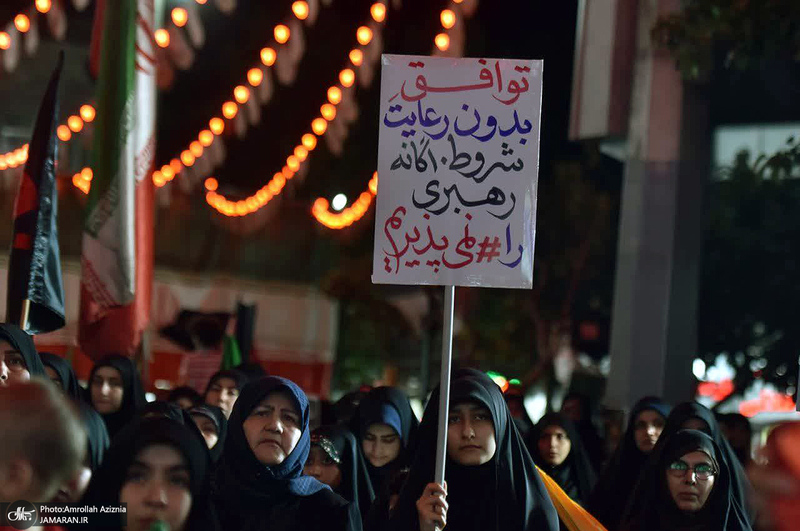 توافقِ
بدون رعایت
شروط ۱۰گانه
رهبری
را #نمی‌پذیریم
Photo:Amrollah Aziznia
JAMARAN.IR